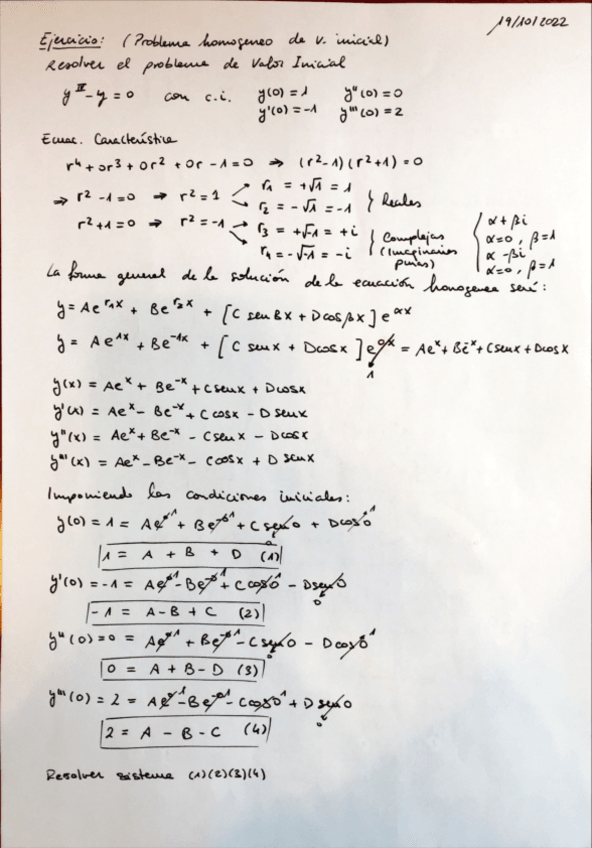 19/10/2022
Ejercicio: (Problema homogeneo de V. inicial)
Resolver el problema de Valor Inicial
y^IV - y = 0 con c.i. y(0) = 1 y''(0) = 0
y'(0) = -1 y'''(0) = 2
Ecuac. Característica
r⁴ + 0r³ + 0r² + 0r - 1 = 0 ⇒ (r²-1)(r²+1) = 0
⇒ r² - 1 = 0 ⇒ r² = 1 r₁ = +√1 = 1
r₂ = -√1 = -1 } Reales
r² + 1 = 0 ⇒ r² = -1 r₃ = +√-1 = +i
r₄ = -√-1 = -i } Complejas (Imaginarias puras)
α + βi
α = 0, β = 1
α - βi
α = 0, β = 1
La forma general de la solución de la ecuación homogenea será:
y = Ae^r₁x + Be^r₂x + [C sen βx + D cos βx] e^αx
y = Ae^1x + Be^-1x + [C senx + D cosx] e^0x = Ae^x + Be^-x + C senx + D cosx
1
y(x) = Ae^x + Be^-x + C senx + D cosx
y'(x) = Ae^x - Be^-x + C cosx - D senx
y''(x) = Ae^x + Be^-x - C senx - D cosx
y'''(x) = Ae^x - Be^-x - C cosx + D senx
Imponiendo las condiciones iniciales:
y(0) = 1 = Ae^0 1 + Be^-0 1 + C sen 0 0 + D cos 0 1
1 = A + B + D (1)
y'(0) = -1 = Ae^0 1 - Be^-0 1 + C cos 0 1 - D sen 0 0
-1 = A - B + C (2)
y''(0) = 0 = Ae^0 1 + Be^-0 1 - C sen 0 0 - D cos 0 1
0 = A + B - D (3)
y'''(0) = 2 = Ae^0 1 - Be^-0 1 - C cos 0 1 + D sen 0 0
2 = A - B - C (4)
Resolver sistema (1)(2)(3)(4)